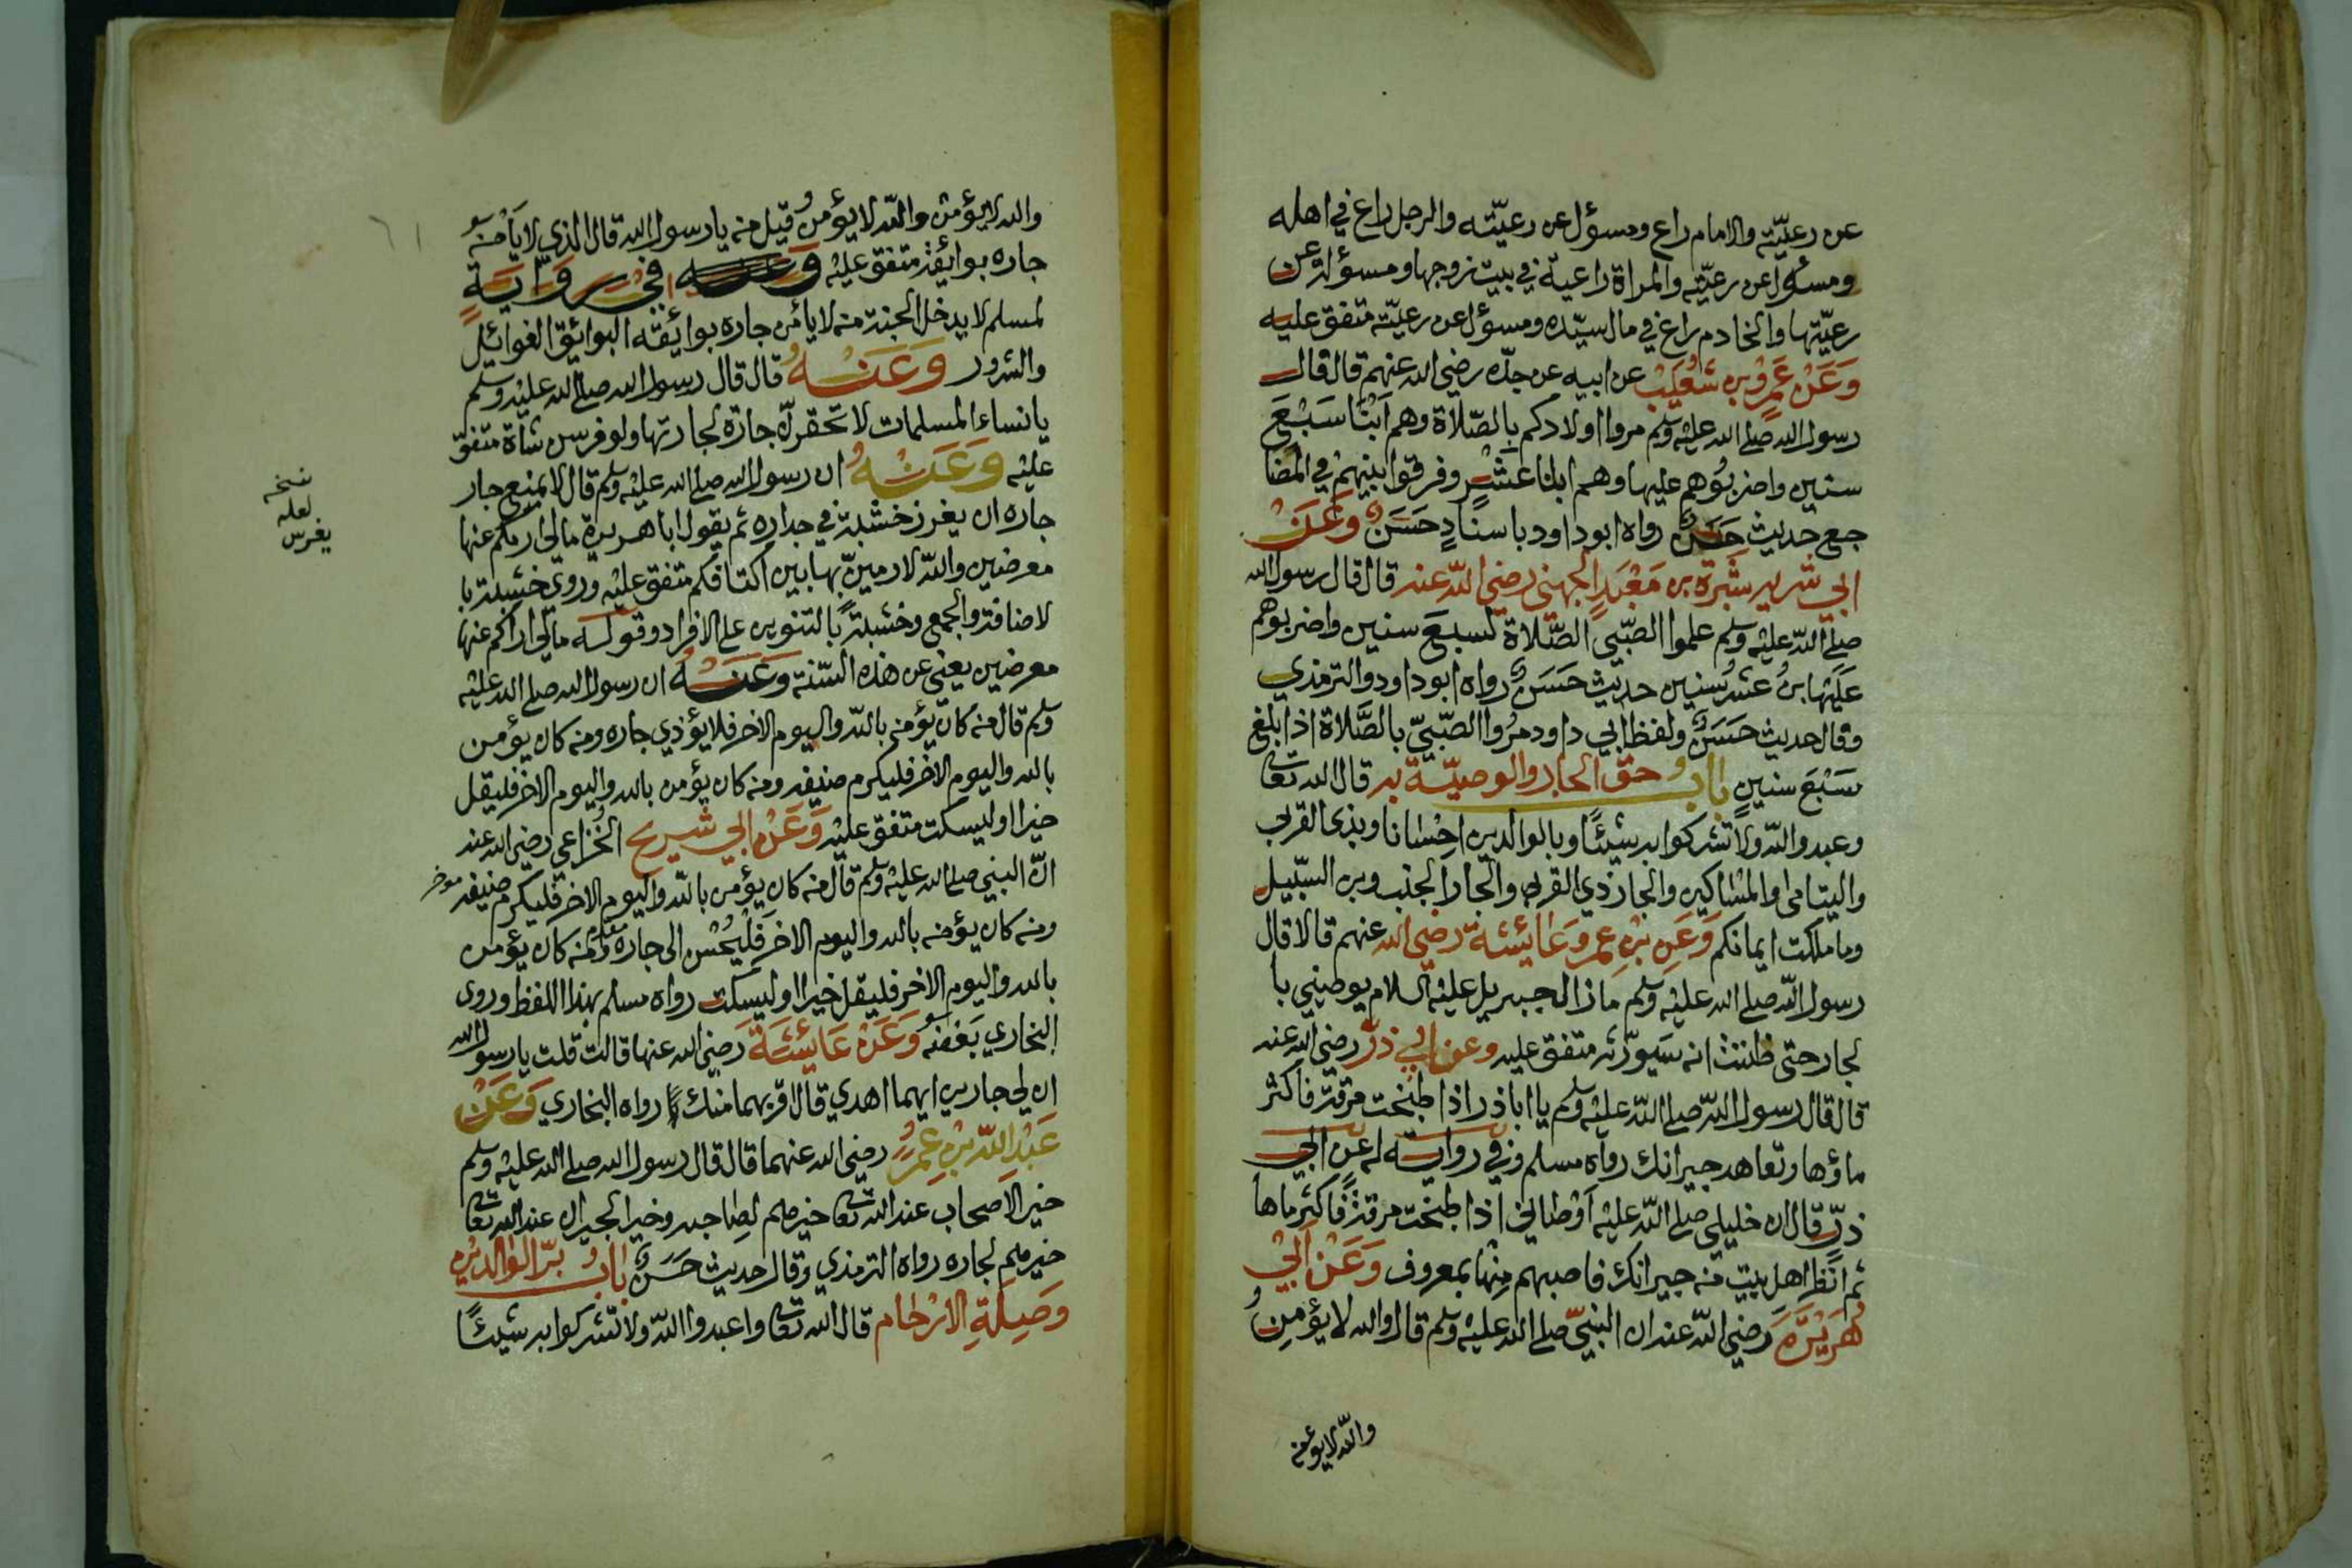 عن رعيّته والامام راع ومسؤل عن رعيّته والرجل راع في اهله
ومسؤل عن رعيّته والمراة راعية في بيت زوجها ومسؤلة عن
رعيّتها والخادم راع في مال سيّده ومسؤل عن رعيّته متفق عليه
وَعَنْ عَمْرِو بن شُعَيْب عن ابيه عن جدّه رضي الله عنهم قال قال
رسول الله صلى الله عليه وسلم مروا اولادكم بالصّلاة وهم ابنا سَبْعَ
سنين واضربُوهم عليها وهم ابنا عَشْرٍ وفرقوا بينهم في المضا
جع حديث حَسَنٌ رواه ابو داود باسنادٍ حَسَنٌ وَعَنْ
ابي شريه سَبْرَة بن مَعْبَدٍ الجهني رضي الله عنه قال قال رسول الله
صلى الله عليه وسلم علموا الصّبي الصَّلاة لسبعَ سنين واضربوهم
عَلَيْها بنُ عَشْرُ سنين حديث حَسَنٌ رواه ابو داود والترمذي
وقال حديث حَسَنٌ ولفظ ابي داود مُرُوا الصّبيّ بالصَّلاة اذا بلغ
سَبْعَ سنينٍ بابُ حق الجار والوصيّة به قال الله تعالى
وعبدو الله ولا تشركوا به شيئًا وبالوالدين احسانا وبذي القربى
واليتامى والمساكين والجار ذي القربى والجار الجنب وبن السّبيل
وما ملكت ايمانكم وَعَنِ بْنِ عمر وَعَائِشَة رضي الله عنهم قالا قال
رسول الله صلى الله عليه وسلم ما زال جبريل عليه السلام يوصيني با
لجار حتى ظننت انه سَيورّثه متفق عليه وعن ابي ذرّ رضي الله عنه
قال قال رسول الله صلى الله عليه وسلم يا ابا ذر اذا طبخت مرقة فاكثر
ماؤها وتعاهد جيرانك رواه مسلم وفي رواية له عن ابي
ذرّ قال ان خليلي صلى الله عليه اوْصاني اذا طبخت مرقةً فاكثر ماها
ثم انظر اهل بيت من جيرانك فاصبهم منها بمعروف وَعَنْ اَبِيْ
هُرَيْرَةَ رضي الله عنه ان النبيّ صلى الله عليه وسلم قال والله لا يؤمِنُ
والله لا يؤمن
٦١
والله لا يؤمن والله لا يؤمن قيل من يا رسول الله قال الذي لا يأمَنُ
جاره بوايقه متفق عليه وفي رِوَايَةٍ
لمسلم لا يدخل الجنة من لا يأمن جاره بوائقه البوائق الغوائل
والشرور وَعَنْهُ قال قال رسول الله صلى الله عليه وسلم
يا نساء المسلمات لا تحقرنّ جارة لجارتها ولو فرسن شاة متفق
عليه وَعَنْهُ ان رسول الله صلى الله عليه وسلم قال لا يمنع جار
جاره ان يغرز خشبة في جداره ثم يقول ابا هريرة مالي اريكم عنها
نسخه
لعله
يغرس
معرضين والله لارمينّ بها بين اكتافكم متفق عليه وروي خشبة با
لاضافة والجمع وخشبةً بالتنوين على الافراد وقوله مالي اراكم عنها
معرضين يعني عن هذه السّنة وَعَنْهُ ان رسول الله صلى الله عليه
وسلم قال من كان يؤمن بالله واليوم الاخر فلا يؤذي جاره ومن كان يؤمن
بالله واليوم الاخر فليكرم ضيفه ومن كان يؤمن بالله واليوم الاخر فليقل
خيرا او ليسكت متفق عليه وَعَنْ ابي شريح الخُزاعي رضي الله عنه
انّ النبي صلى الله عليه وسلم قال من كان يؤمن بالله واليوم الاخر فليكرم ضيفه مؤخر
ومن كان يؤمن بالله واليوم الاخر فَلْيُحْسن الى جاره مقدم ومن كان يؤمن
بالله واليوم الاخر فليقل خيرا او ليسكت رواه مسلم بهذا اللفظ وروى
البخاري بَعْضَهُ وَعَنْ عَائِشَةَ رضي الله عنها قالت قلت يا رسول الله
ان لي جارين ايهما اهدي قال اقربهما منك رواه البخاري وَعَنْ
عَبْدِ اللهِ بْنِ عُمَرُ رضي الله عنهما قال قال رسول الله صلى الله عليه وسلم
خير الاصحاب عند الله تعالى خيرهم لصاحبه وخير الجيران عند الله تعالى
خيرهم لجاره رواه الترمذي وقال حديث حَسَنٌ بابُ برّ الوالدين
وَصِلَةِ الارْحَام قال الله تعالى واعبدوا الله ولا تشركوا به شيئًا